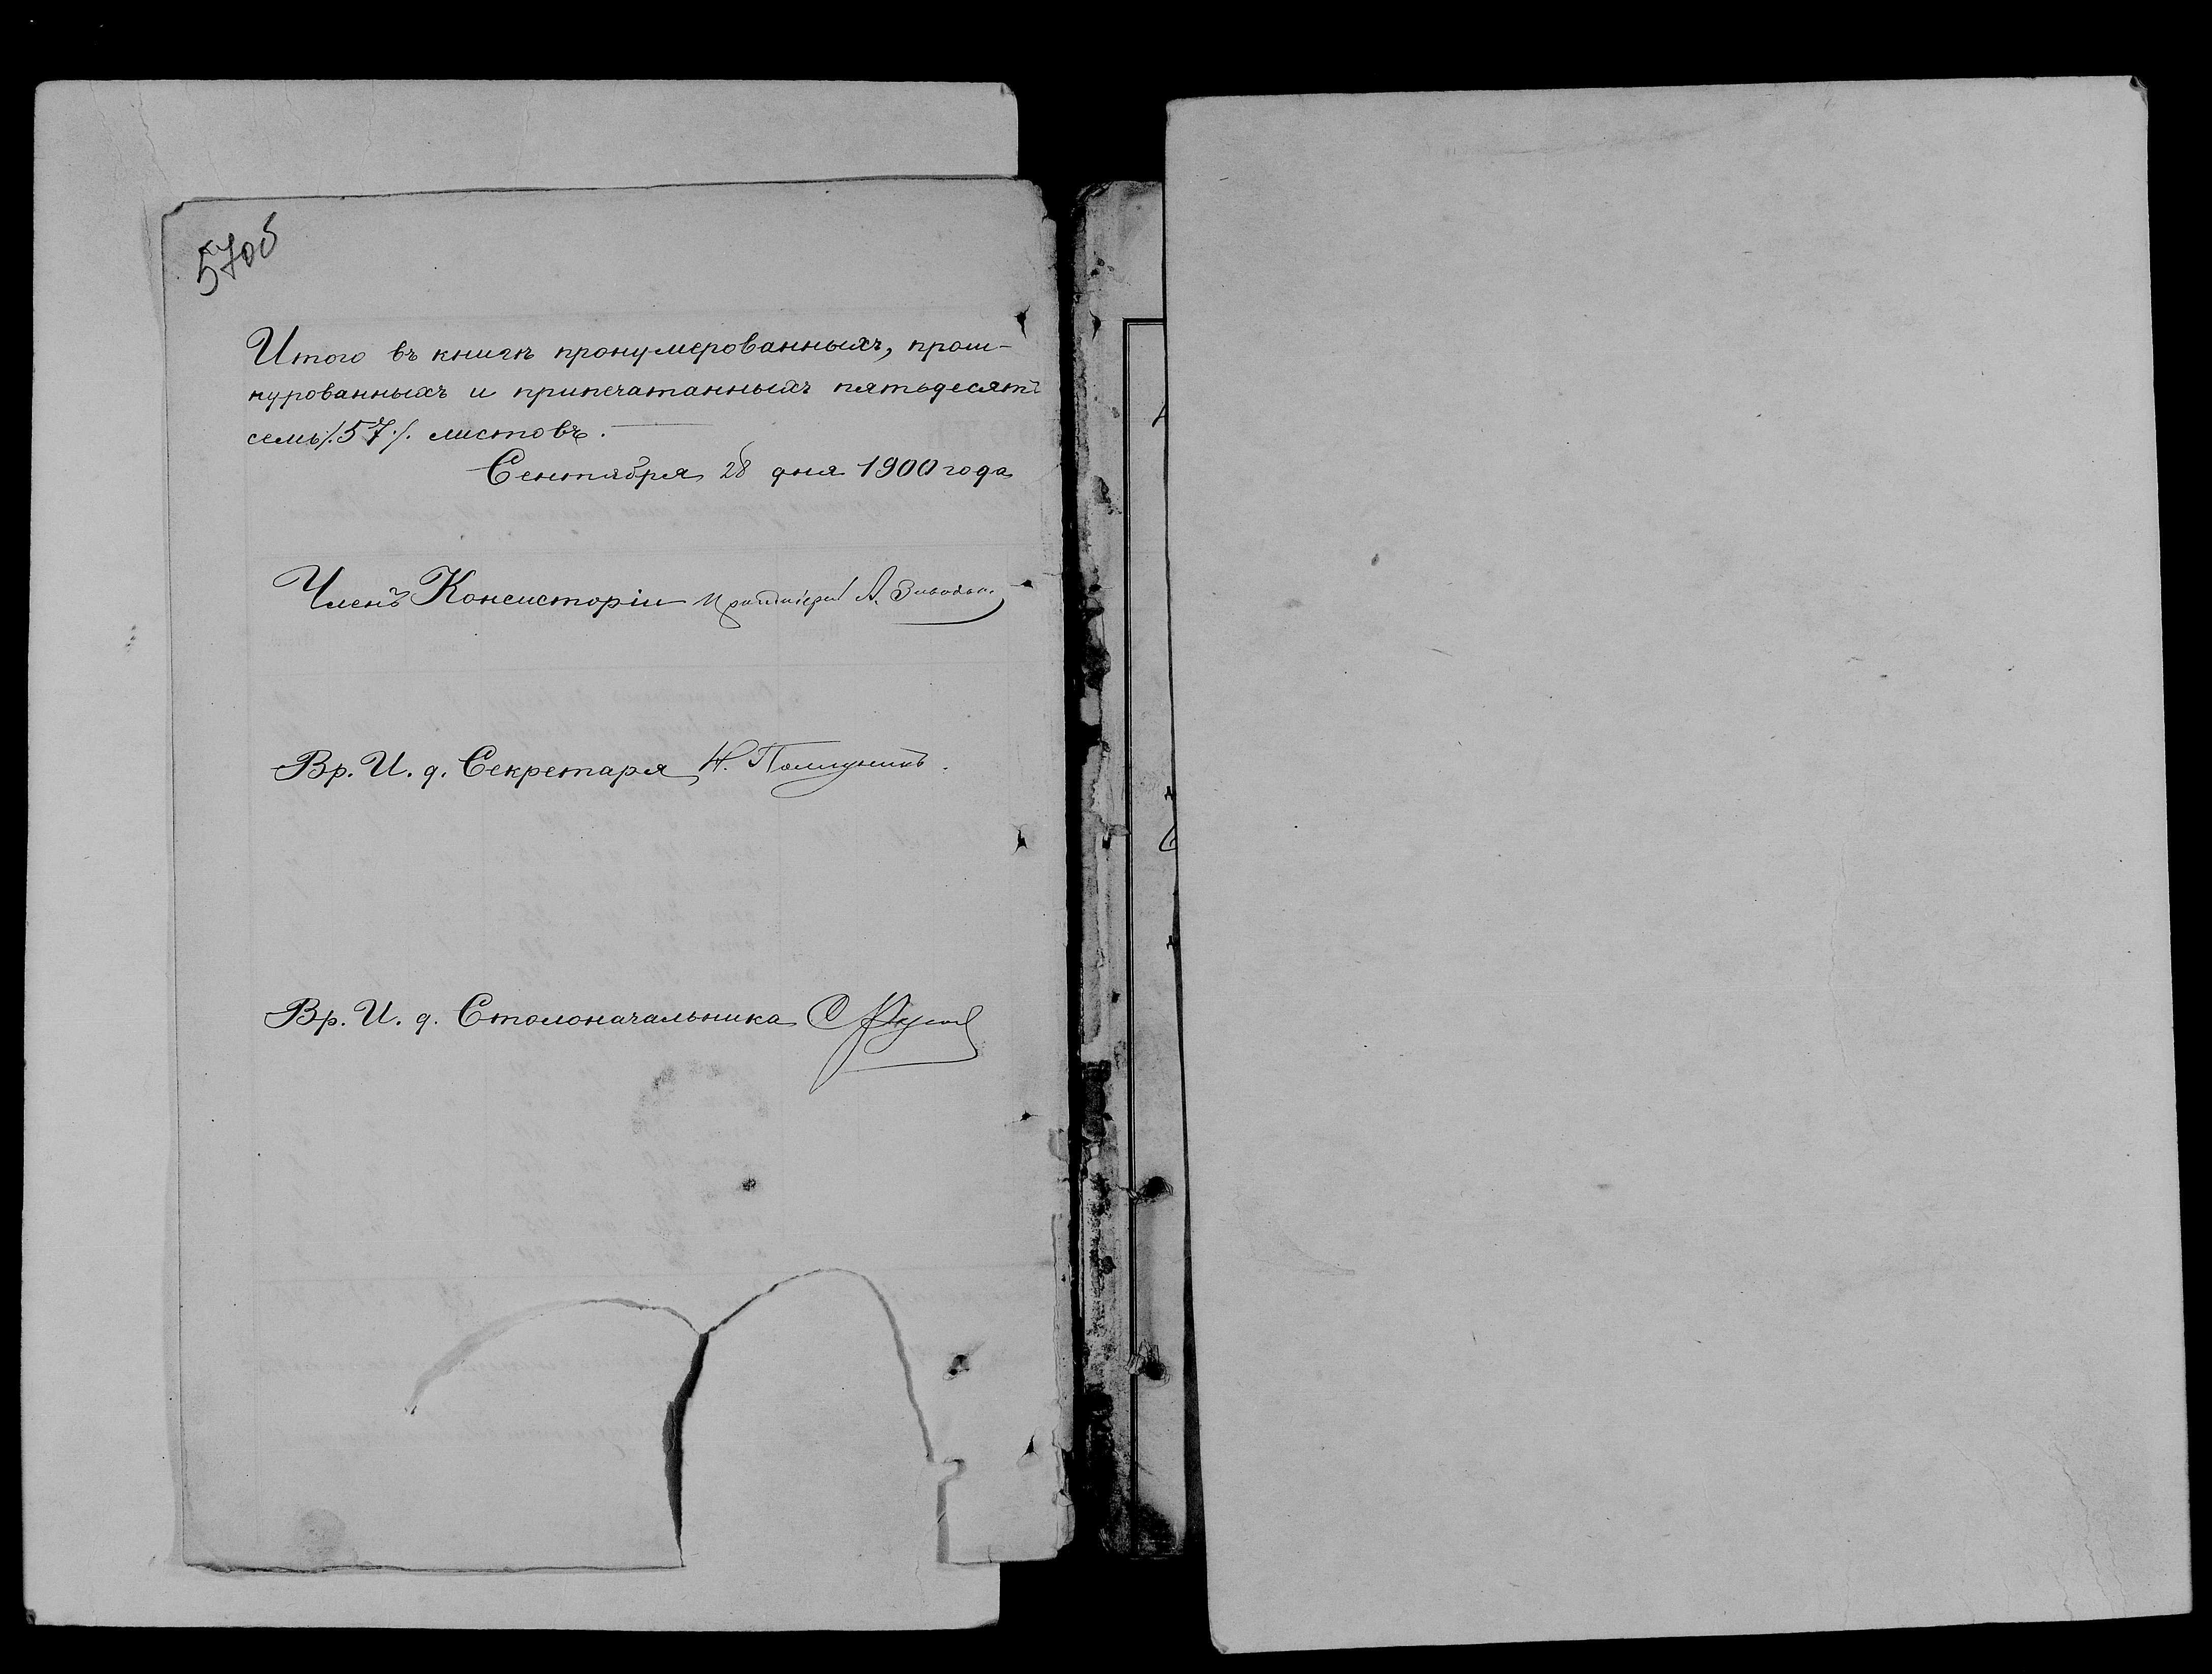 57об
Итого въ книгѣ пронумерованныхъ, прош-
нурованныхъ и припечатанныхъ пятьдесятъ
семь /.57./. листовъ.
Сентября 28 дня 1900 года
Членъ Консисторіи А.
Вр. И. д. Секретаря Н.
Вр. И. д. Столоначальника